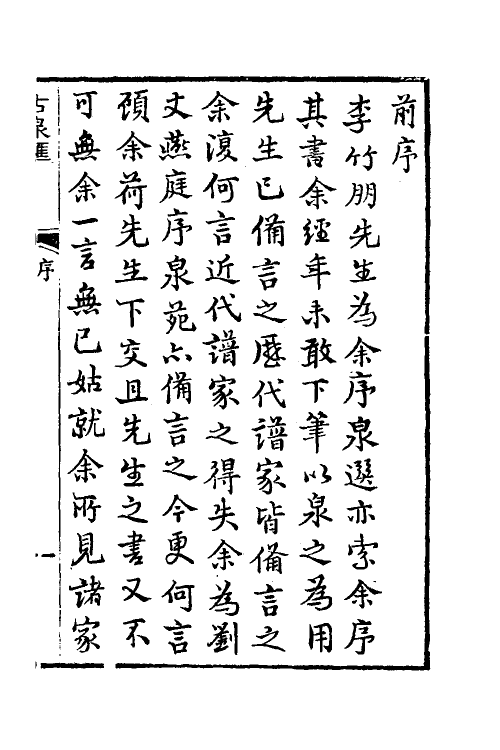 前序
李竹朋先生為余序泉選亦索余序
其書余經年未敢下筆以泉之為用
先生已備言之歷代譜家皆備言之
余復何言近代譜家之得失余為劉
丈燕庭序泉苑亦備言之今更何言
顧余荷先生下交且先生之書又不
可無余一言無已姑就余所見諸家
古泉匯
序
一